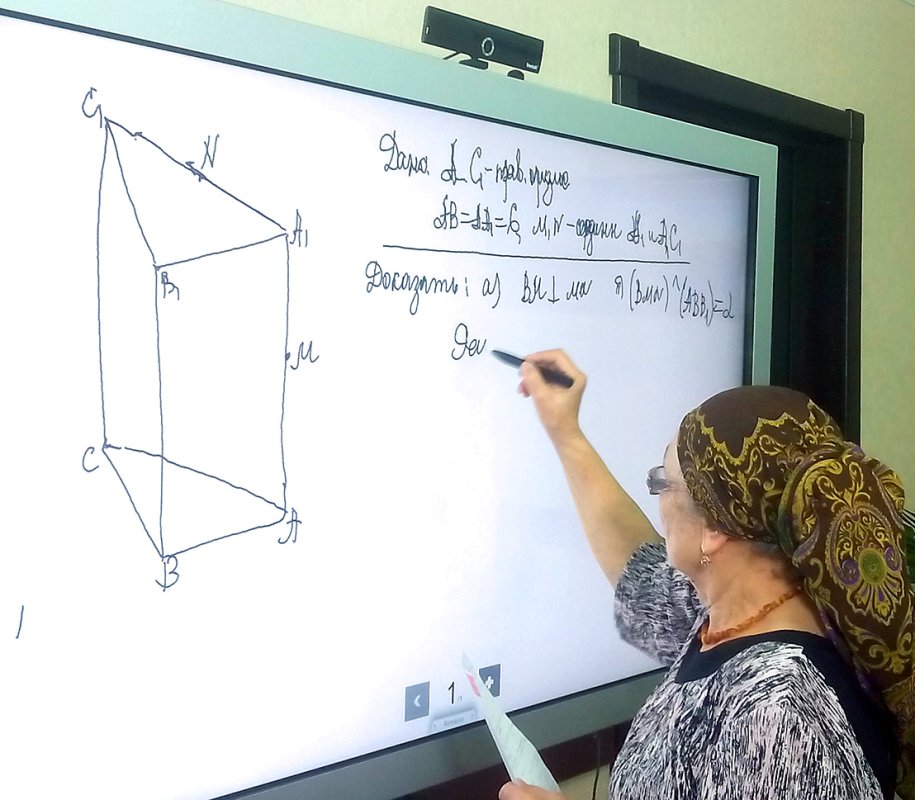 C₁
N
A₁
B₁
M
C
A
B
Дано: AC₁-прав. призма
AB=AA₁=6, M, N - AA₁ и A₁C₁
Доказать: а) BM⊥MN б) (BMN)^(ABB₁)=α
1